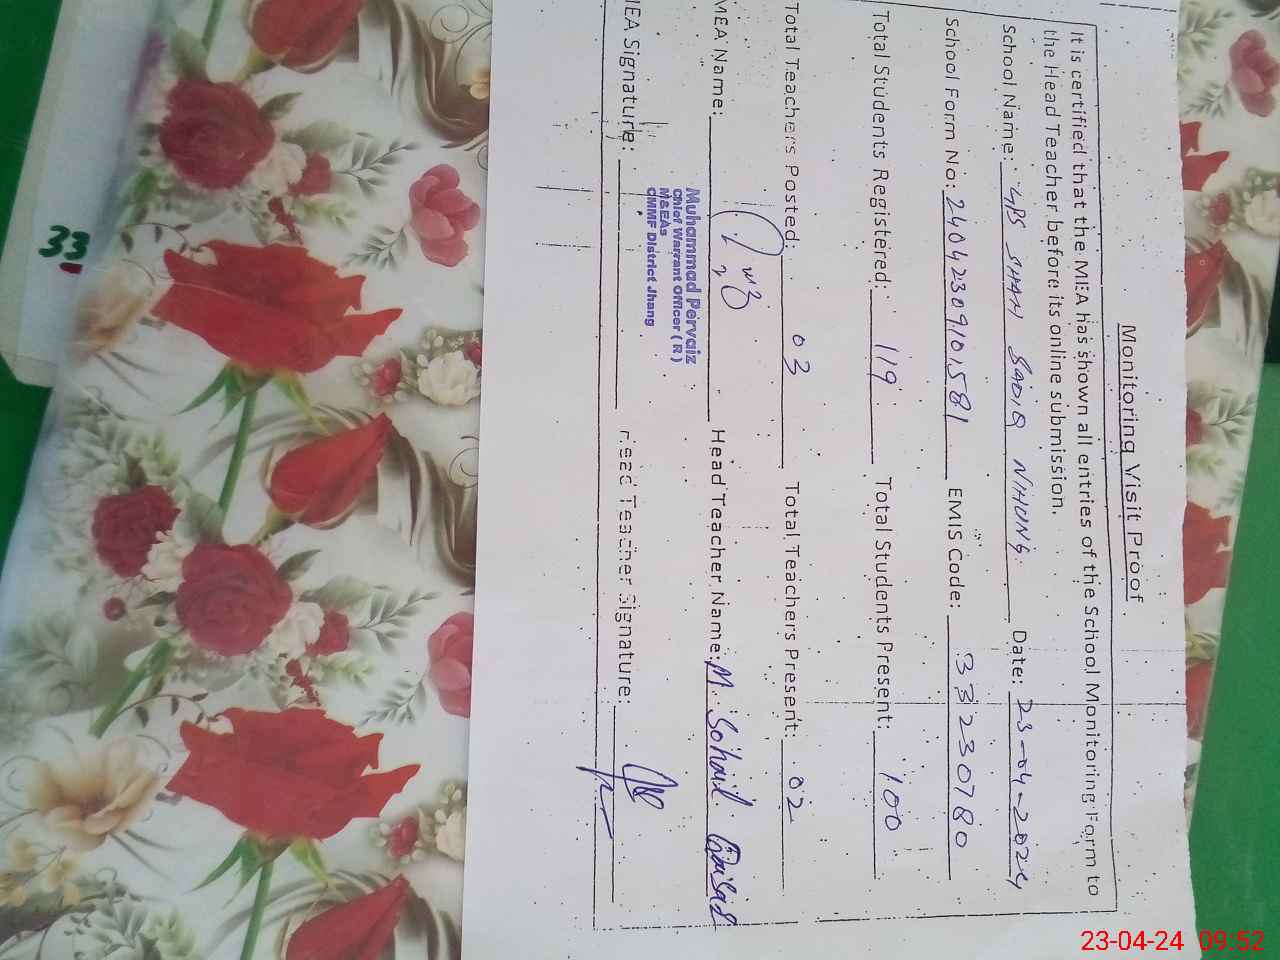 Monitoring Visit Proof
It is certified that the MEA has shown all entries of the School Monitoring Form to
the Head Teacher before its online submission.
School Name: GPS SHAH SADIQ NIHUNG Date: 23-04-2024
School Form No: 24042309101581 EMIS Code: 33230780
Total Students Registered: 119 Total Students Present: 100
Total Teachers Posted: 03 Total Teachers Present: 02
MEA Name: Head Teacher Name: M. Sohail
Muhammad Pervaiz
Chief Warrant Officer (R)
M&EAs
CMMF District Jhang
IEA Signature: Head Teacher Signature:
33
23-04-24 09:52